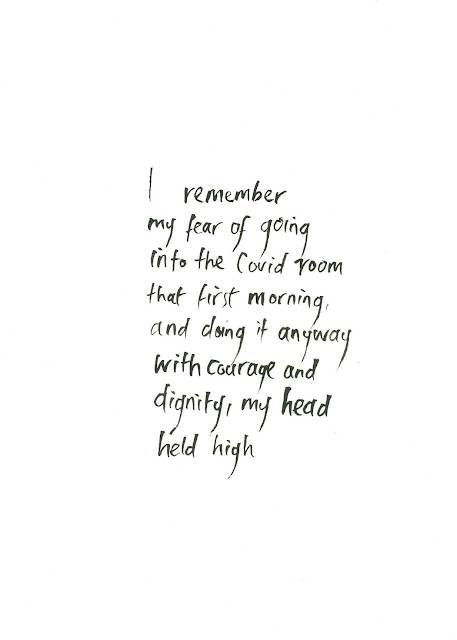 I remember
my fear of going
into the Covid room
that first morning,
and doing it anyway
with courage and
dignity, my head
held high